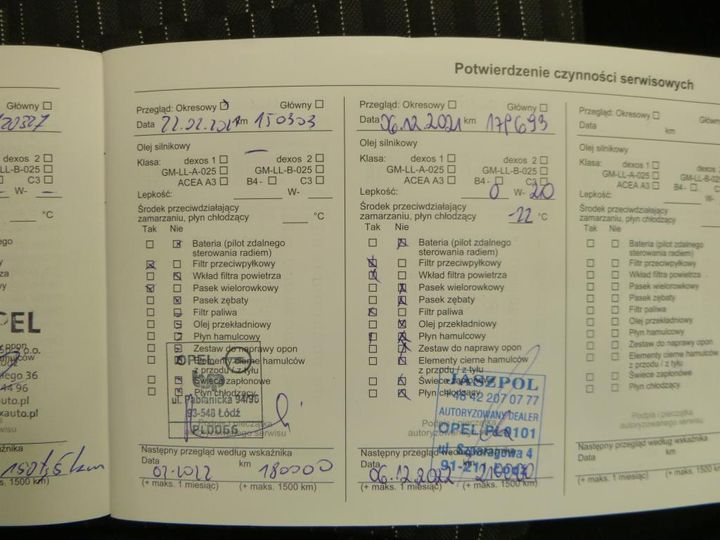 Potwierdzenie czynności serwisowych
Główny
120327
dexos 2
GM-LL-B-025
C3
W-
°C
PEL
o.o.
36
44 96
auto.pl
150 tyś km
(+ maks. 1500 km)
Przegląd: Okresowy Główny
Data 22.02.2021 km 150303
Olej silnikowy
Klasa: dexos 1 dexos 2
GM-LL-A-025 GM-LL-B-025
ACEA A3 B4 - C3
Lepkość: W-
Środek przeciwdziałający
zamarzaniu, płyn chłodzący °C
Tak Nie
Bateria (pilot zdalnego
sterowania radiem)
Filtr przeciwpyłkowy
Wkład filtra powietrza
Pasek wielorowkowy
Pasek zębaty
Filtr paliwa
Olej przekładniowy
Płyn hamulcowy
Zestaw do naprawy opon
Elementy cierne hamulców
z przodu / z tyłu
Świece zapłonowe
Płyn chłodzący
OPEL
ul. Pabianicka 94/96
93-548 Łódź
PL0066
Następny przegląd według wskaźnika
Data km
02.2022 180000
(+ maks. 1 miesiąc) (+ maks. 1500 km)
Przegląd: Okresowy Główny
Data 06.12.2021 km 179693
Olej silnikowy
Klasa: dexos 1 dexos 2
GM-LL-A-025 GM-LL-B-025
ACEA A3 B4 - C3
Lepkość: 0 W- 20
Środek przeciwdziałający
zamarzaniu, płyn chłodzący -22 °C
Tak Nie
Bateria (pilot zdalnego
sterowania radiem)
Filtr przeciwpyłkowy
Wkład filtra powietrza
Pasek wielorowkowy
Pasek zębaty
Filtr paliwa
Olej przekładniowy
Płyn hamulcowy
Zestaw do naprawy opon
Elementy cierne hamulców
z przodu / z tyłu
Świece zapłonowe
Płyn chłodzący
JASZPOL
+48 42 207 07 77
AUTORYZOWANY DEALER
OPEL PL0101
ul. Szparagowa 4
91-211 Łódź
Następny przegląd według wskaźnika
Data
06.12.2022 210000
(+ maks. 1 miesiąc) (+ maks. 1500 km)
Przegląd: Okresowy
Data km
Olej silnikowy
Klasa: dexos 1
GM-LL-A-025
ACEA A3 B4 -
Lepkość: W-
Środek przeciwdziałający
zamarzaniu, płyn chłodzący
Tak Nie
Bateria (pilot zdalnego
sterowania radiem)
Filtr przeciwpyłkowy
Wkład filtra powietrza
Pasek wielorowkowy
Pasek zębaty
Filtr paliwa
Olej przekładniowy
Płyn hamulcowy
Zestaw do naprawy opon
Elementy cierne hamulców
z przodu / z tyłu
Świece zapłonowe
Płyn chłodzący
Podpis i pieczątka
autoryzowanego serwisu
Następny przegląd według wskaźnika
Data km
(+ maks. 1 miesiąc) (+ maks. 1500 km)